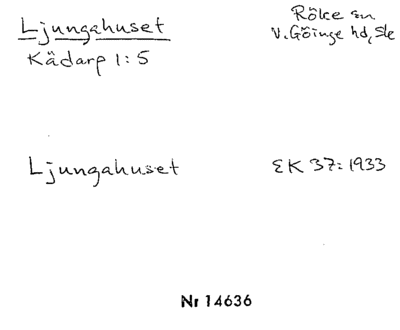 Ljungahuset
Kädarp 1:5
Röke sn
V. Göinge hd, Sk
Ljungahuset
EK 37: 1933
Nr 14636